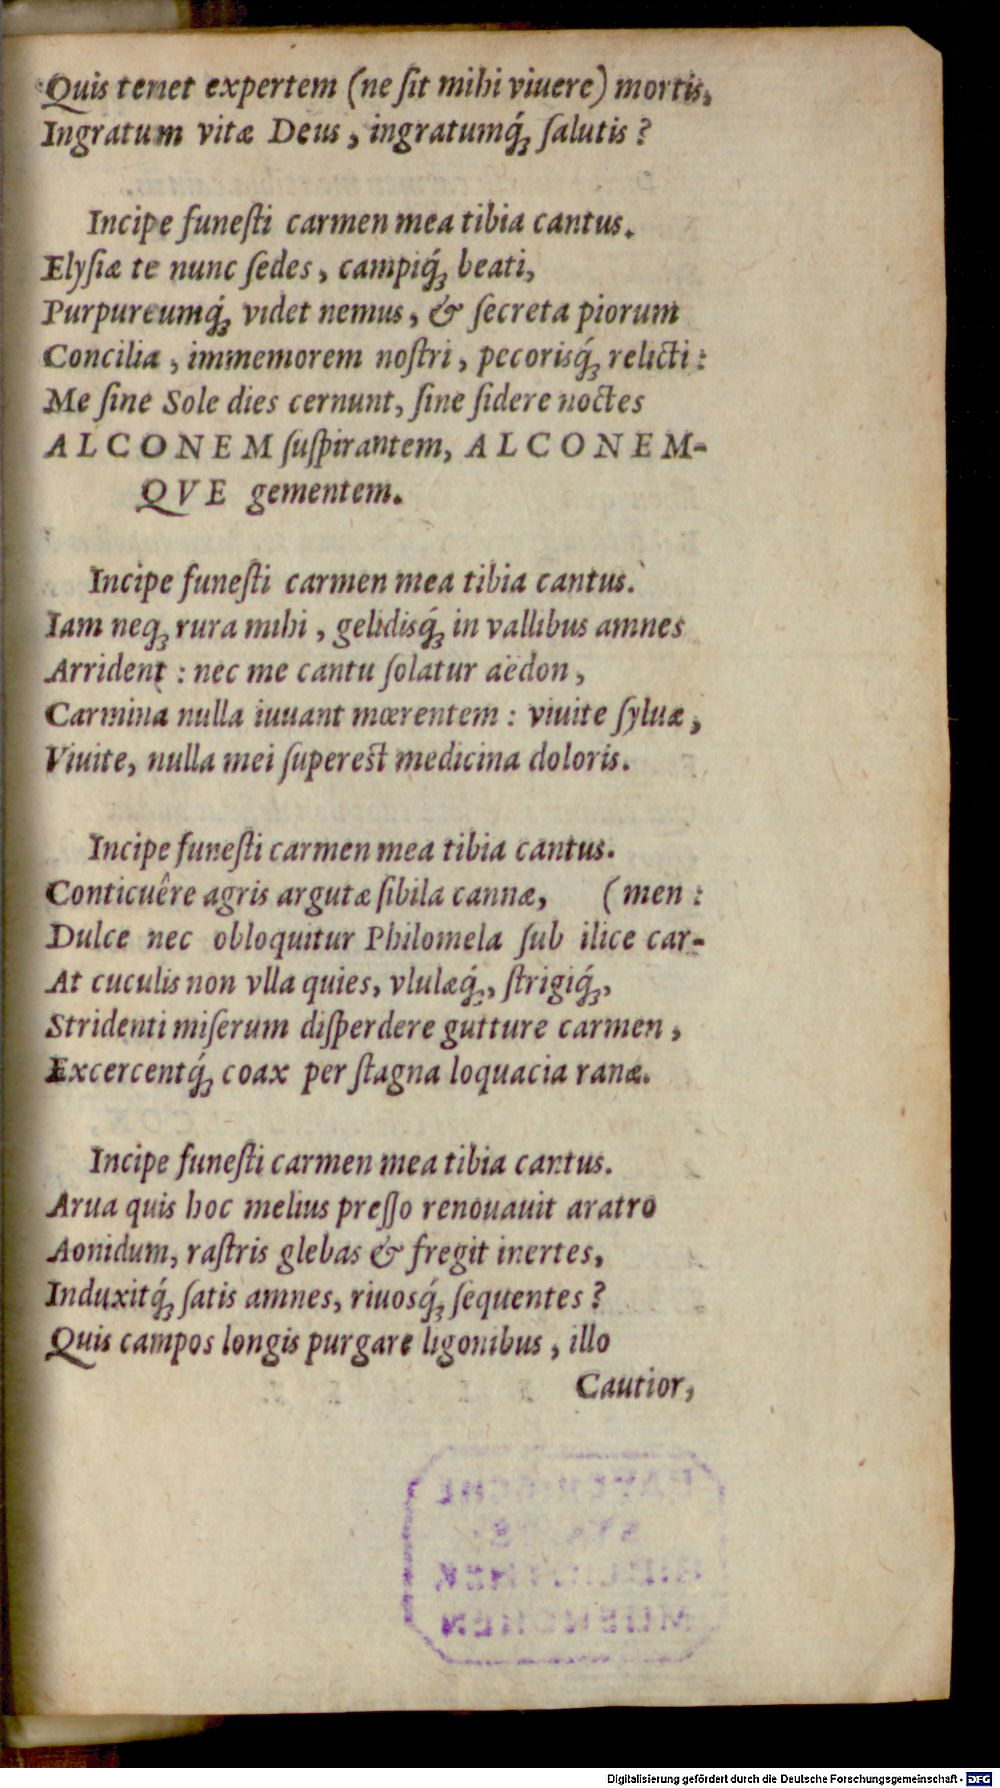 Quis tenet expertem (ne ſit mihi viuere) mortis,
Ingratum vitæ Deus, ingratumq́; ſalutis?
Incipe funeſti carmen mea tibia cantus.
Elyſiæ te nunc ſedes, campiq́; beati,
Purpureumq́; videt nemus, & ſecreta piorum
Concilia, immemorem noſtri, pecorisq́; relicti:
Me ſine Sole dies cernunt, ſine ſidere noctes
ALCONEM ſuſpirantem, ALCONEM-
QVE gementem.
Incipe funeſti carmen mea tibia cantus.
Iam neq; rura mihi, gelidisq́; in vallibus amnes
Arrident: nec me cantu ſolatur aëdon,
Carmina nulla iuuant mœrentem: viuite ſyluæ,
Viuite, nulla mei ſupereſt medicina doloris.
Incipe funeſti carmen mea tibia cantus.
Conticuêre agris argutæ ſibila cannæ, (men:
Dulce nec obloquitur Philomela ſub ilice car-
At cuculis non vlla quies, vlulæq́;, ſtrigiq́;,
Stridenti miſerum diſperdere gutture carmen,
Excercentq́; coax per ſtagna loquacia ranæ.
Incipe funeſti carmen mea tibia cantus.
Arua quis hoc melius preſſo renouauit aratro
Aonidum, raſtris glebas & fregit inertes,
Induxitq́; ſatis amnes, riuosq́; ſequentes?
Quis campos longis purgare ligonibus, illo
Cautior,
Digitalisierung gefördert durch die Deutsche Forschungsgemeinschaft - DFG